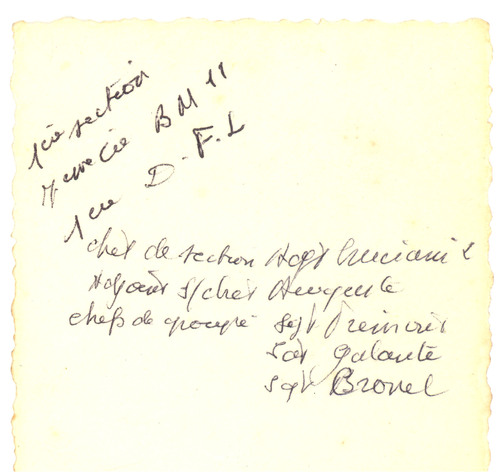 1ère section
Cie BM 11
1ère D.F.L
chef de section Adjt Luciani
Adjoint s/chef
chefs de groupe Sgt
Sgt Galante
Sgt Bronel